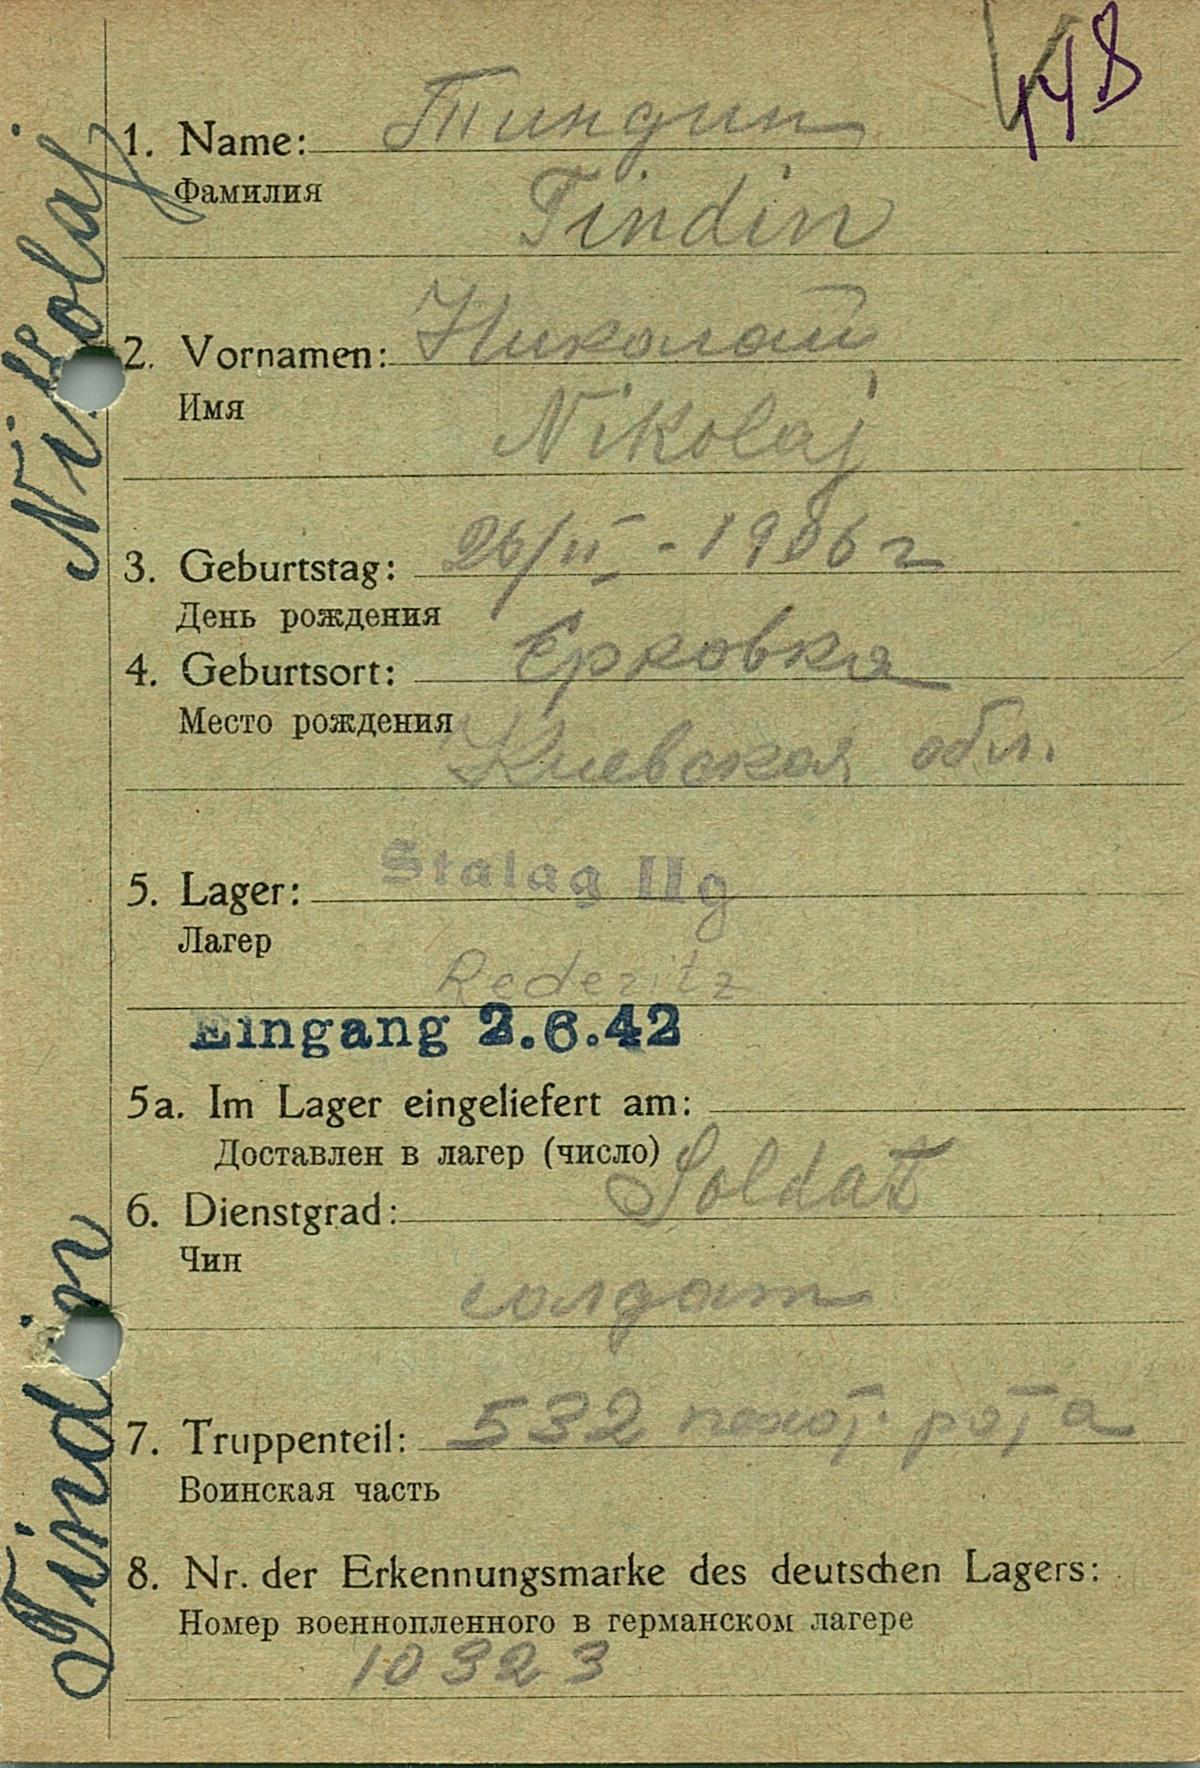 148
1. Name: Тиндин
Фамилия
Tindin
2. Vornamen: Николай
Имя
Nikolaj
3. Geburtstag: 26/II - 1906 г
День рождения
4. Geburtsort: Ерковка
Место рождения
Киевская обл.
5. Lager: Stalag IIg
Лагер
Rederitz
Eingang 2.6.42
5a. Im Lager eingeliefert am:
Доставлен в лагер (число)
6. Dienstgrad: Soldat
Чин
солдат
7. Truppenteil: 532 пехот. рота
Воинская часть
8. Nr. der Erkennungsmarke des deutschen Lagers:
Номер военнопленного в германском лагере
10323
Tindin Nikolaj